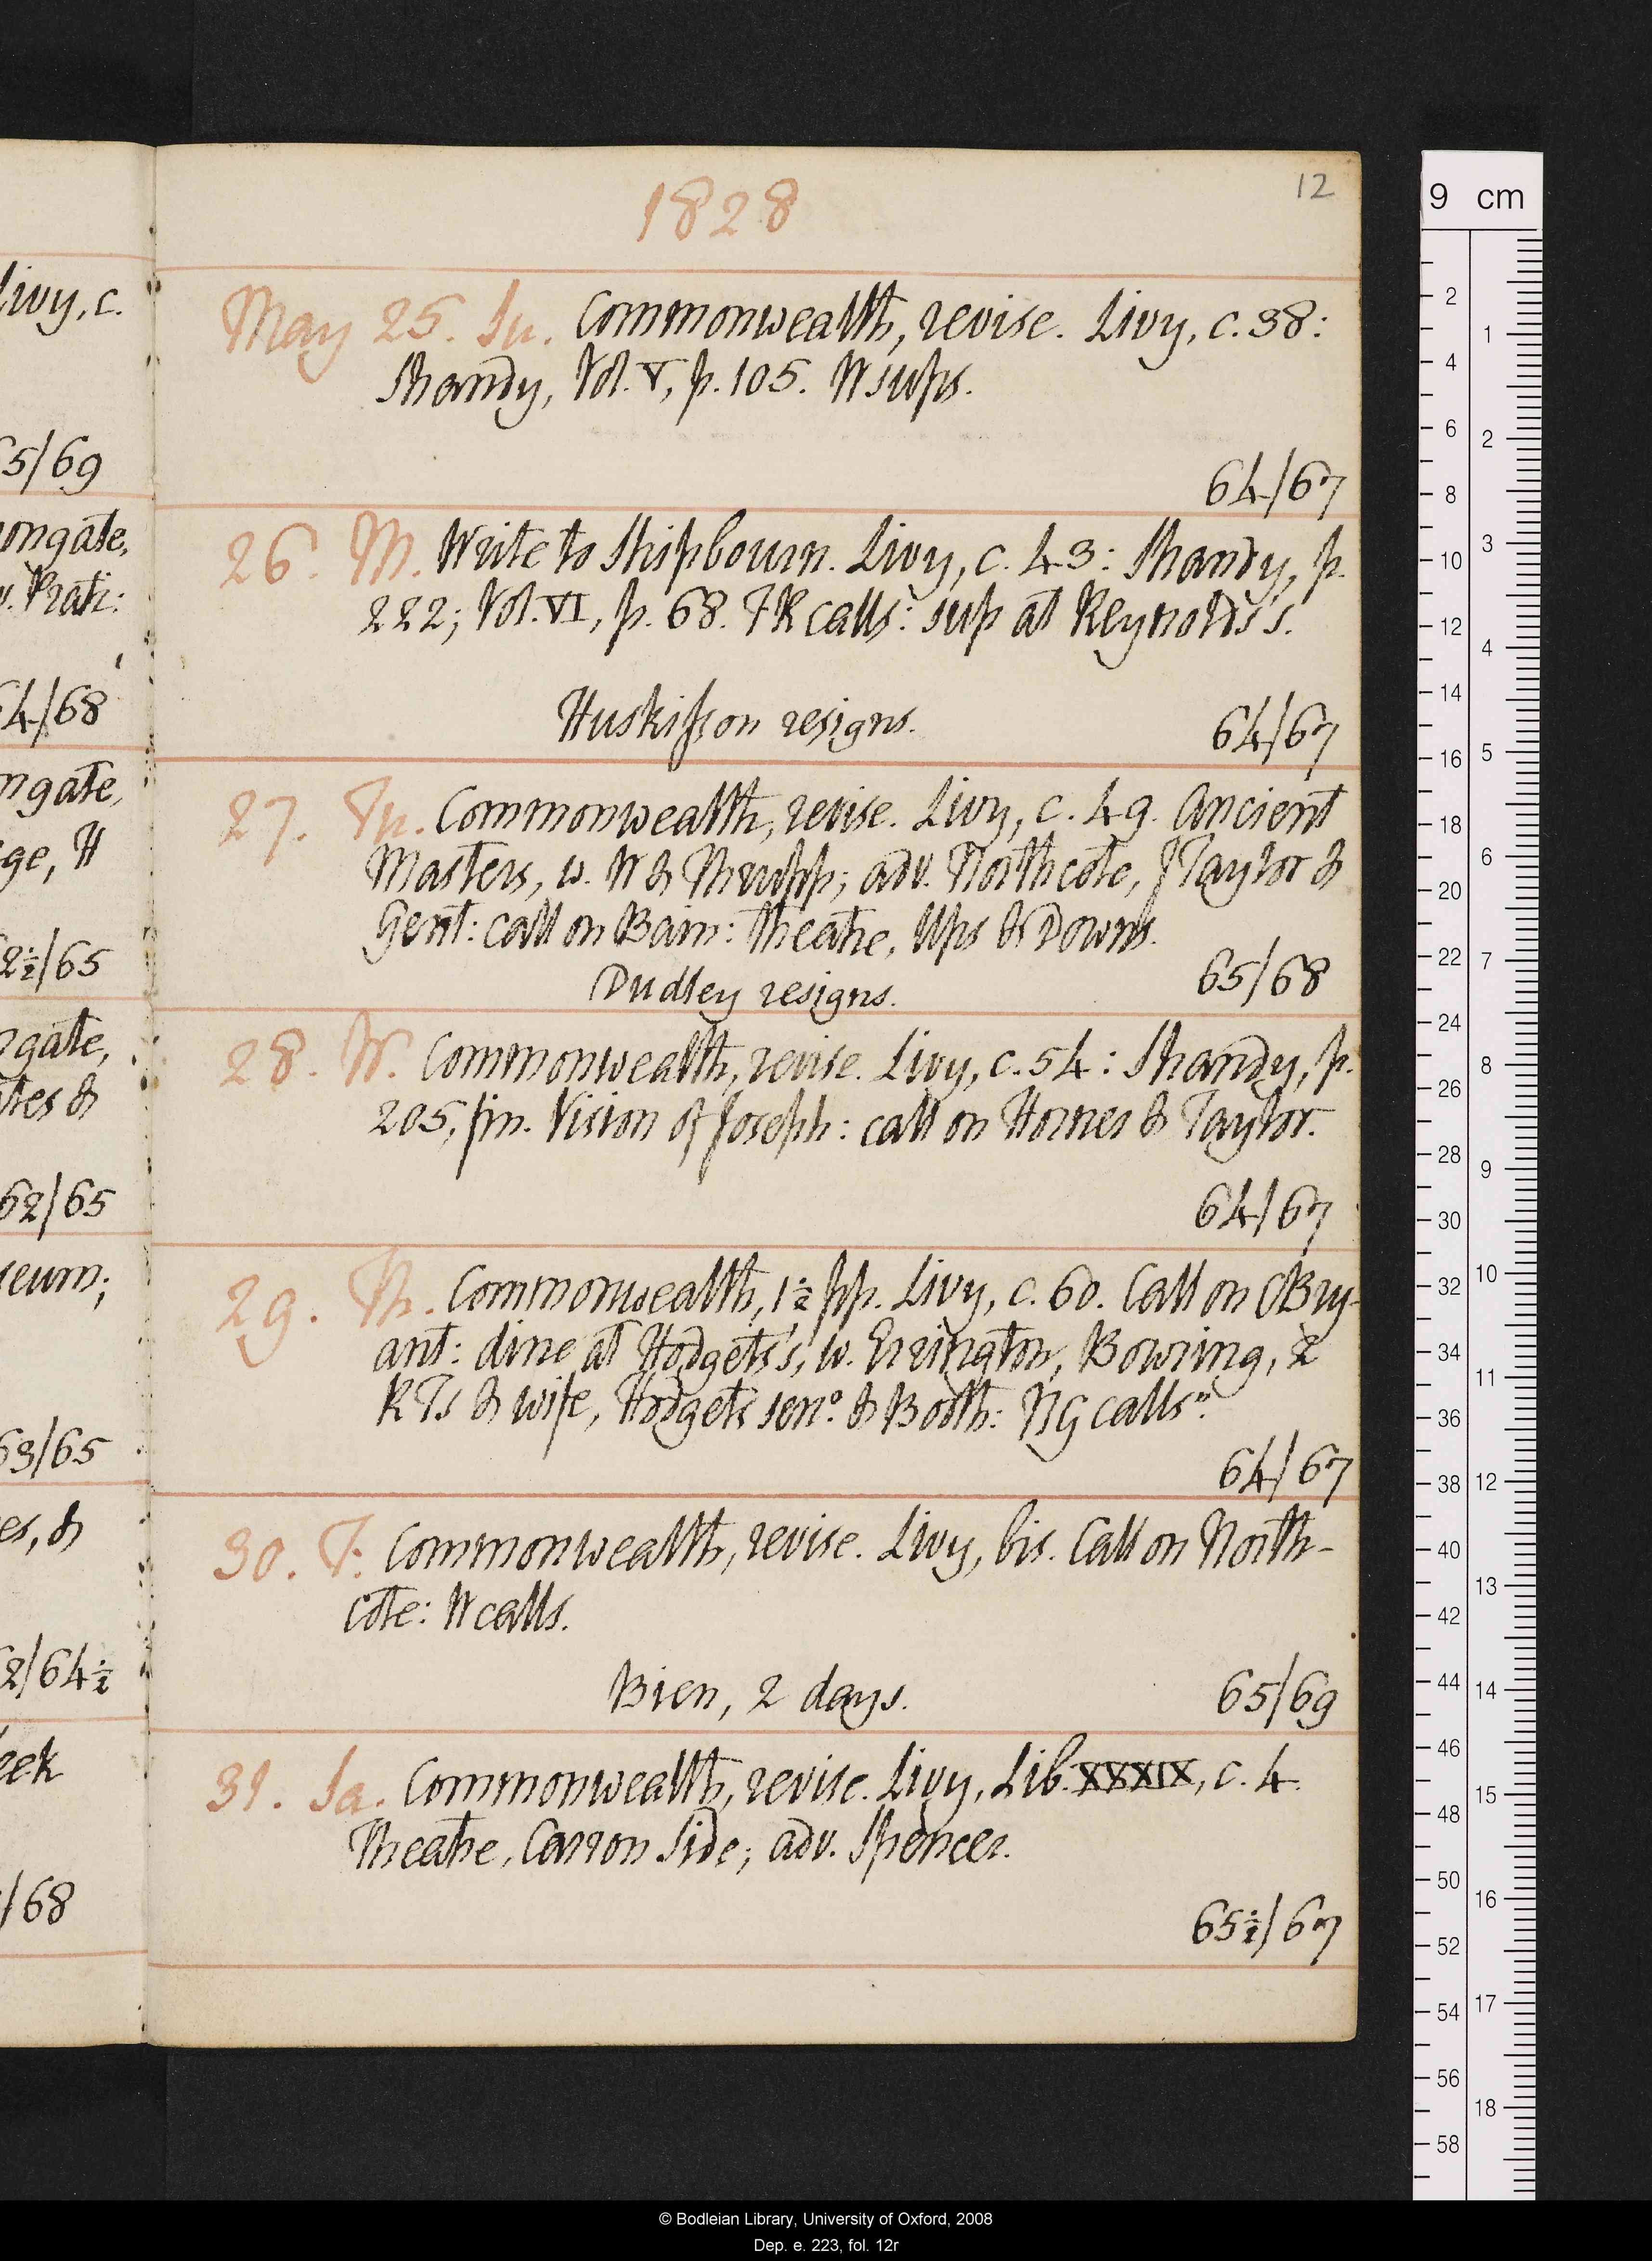 12
1828
May 25. Su. Commonwealth, revise. Livy, c. 38:
Shandy, Vol. V, p. 105. W sups.
64/67
26. M. Write to Shipbourn. Livy, c. 43: Shandy, p.
222; Vol. VI, p. 68. FR calls: sup at Reynolds's.
Huskisson resigns.
64/67
27. Tu. Commonwealth, revise. Livy, c. 49. Ancient
Masters, w. W & Thrupp; adv. Northcote, J Taylor &
Gent: call on Bain: theatre, Ups & Downs.
65/68
Dudley resigns.
28. W. Commonwealth, revise. Livy, c. 54: Shandy, p.
205, fin. Vision of Joseph: call on Hornes & Taylor.
64/67
29. Th. Commonwealth, 1½ pp. Livy, c. 60. Call on OBry-
ant: dine at Hodgets's, w. Errington, Bowring, 2
RTs & wife, Hodgets senr. & Booth: NG callsn.
64/67
30. F. Commonwealth, revise. Livy, bis. Call on North-
cote: W calls.
Bien, 2 days.
65/69
31. Sa. Commonwealth, revise. Livy, Lib. XXXIX, c. 4.
Theatre, Carron Side; adv. Spencer.
65½/67
livy, c.
65/69
ongate,
64/68
ngate,
ge, H
62½/65
gate,
tes &
62/65
seum;
63/65
es, &
62/64½
eek
/68
9 cm
2
4
6
8
10
12
14
16
18
20
22
24
26
28
30
32
34
36
38
40
42
44
46
48
50
52
54
56
58
1
2
3
4
5
6
7
8
9
10
11
12
13
14
15
16
17
18
© Bodleian Library, University of Oxford, 2008
Dep. e. 223, fol. 12r